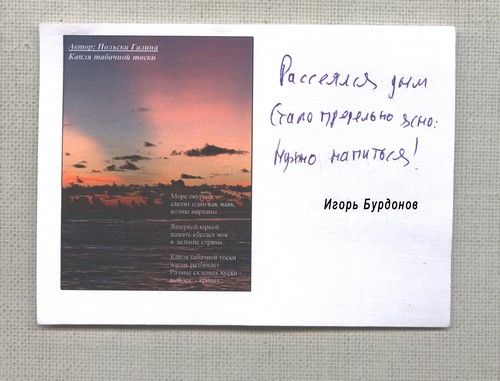 Автор: Польски Галина
Капля табачной тоски
Море окурков,
светит один как маяк,
волны вирканы
Ящеркой юркой
память сбегает моя
в дальние страны
Капля табачной тоски
жизнь разбивает
Разные склеишь куски -
выйдет - кривая
Рассеялся дым
Стало предельно ясно:
Нужно напиться!
Игорь Бурдонов